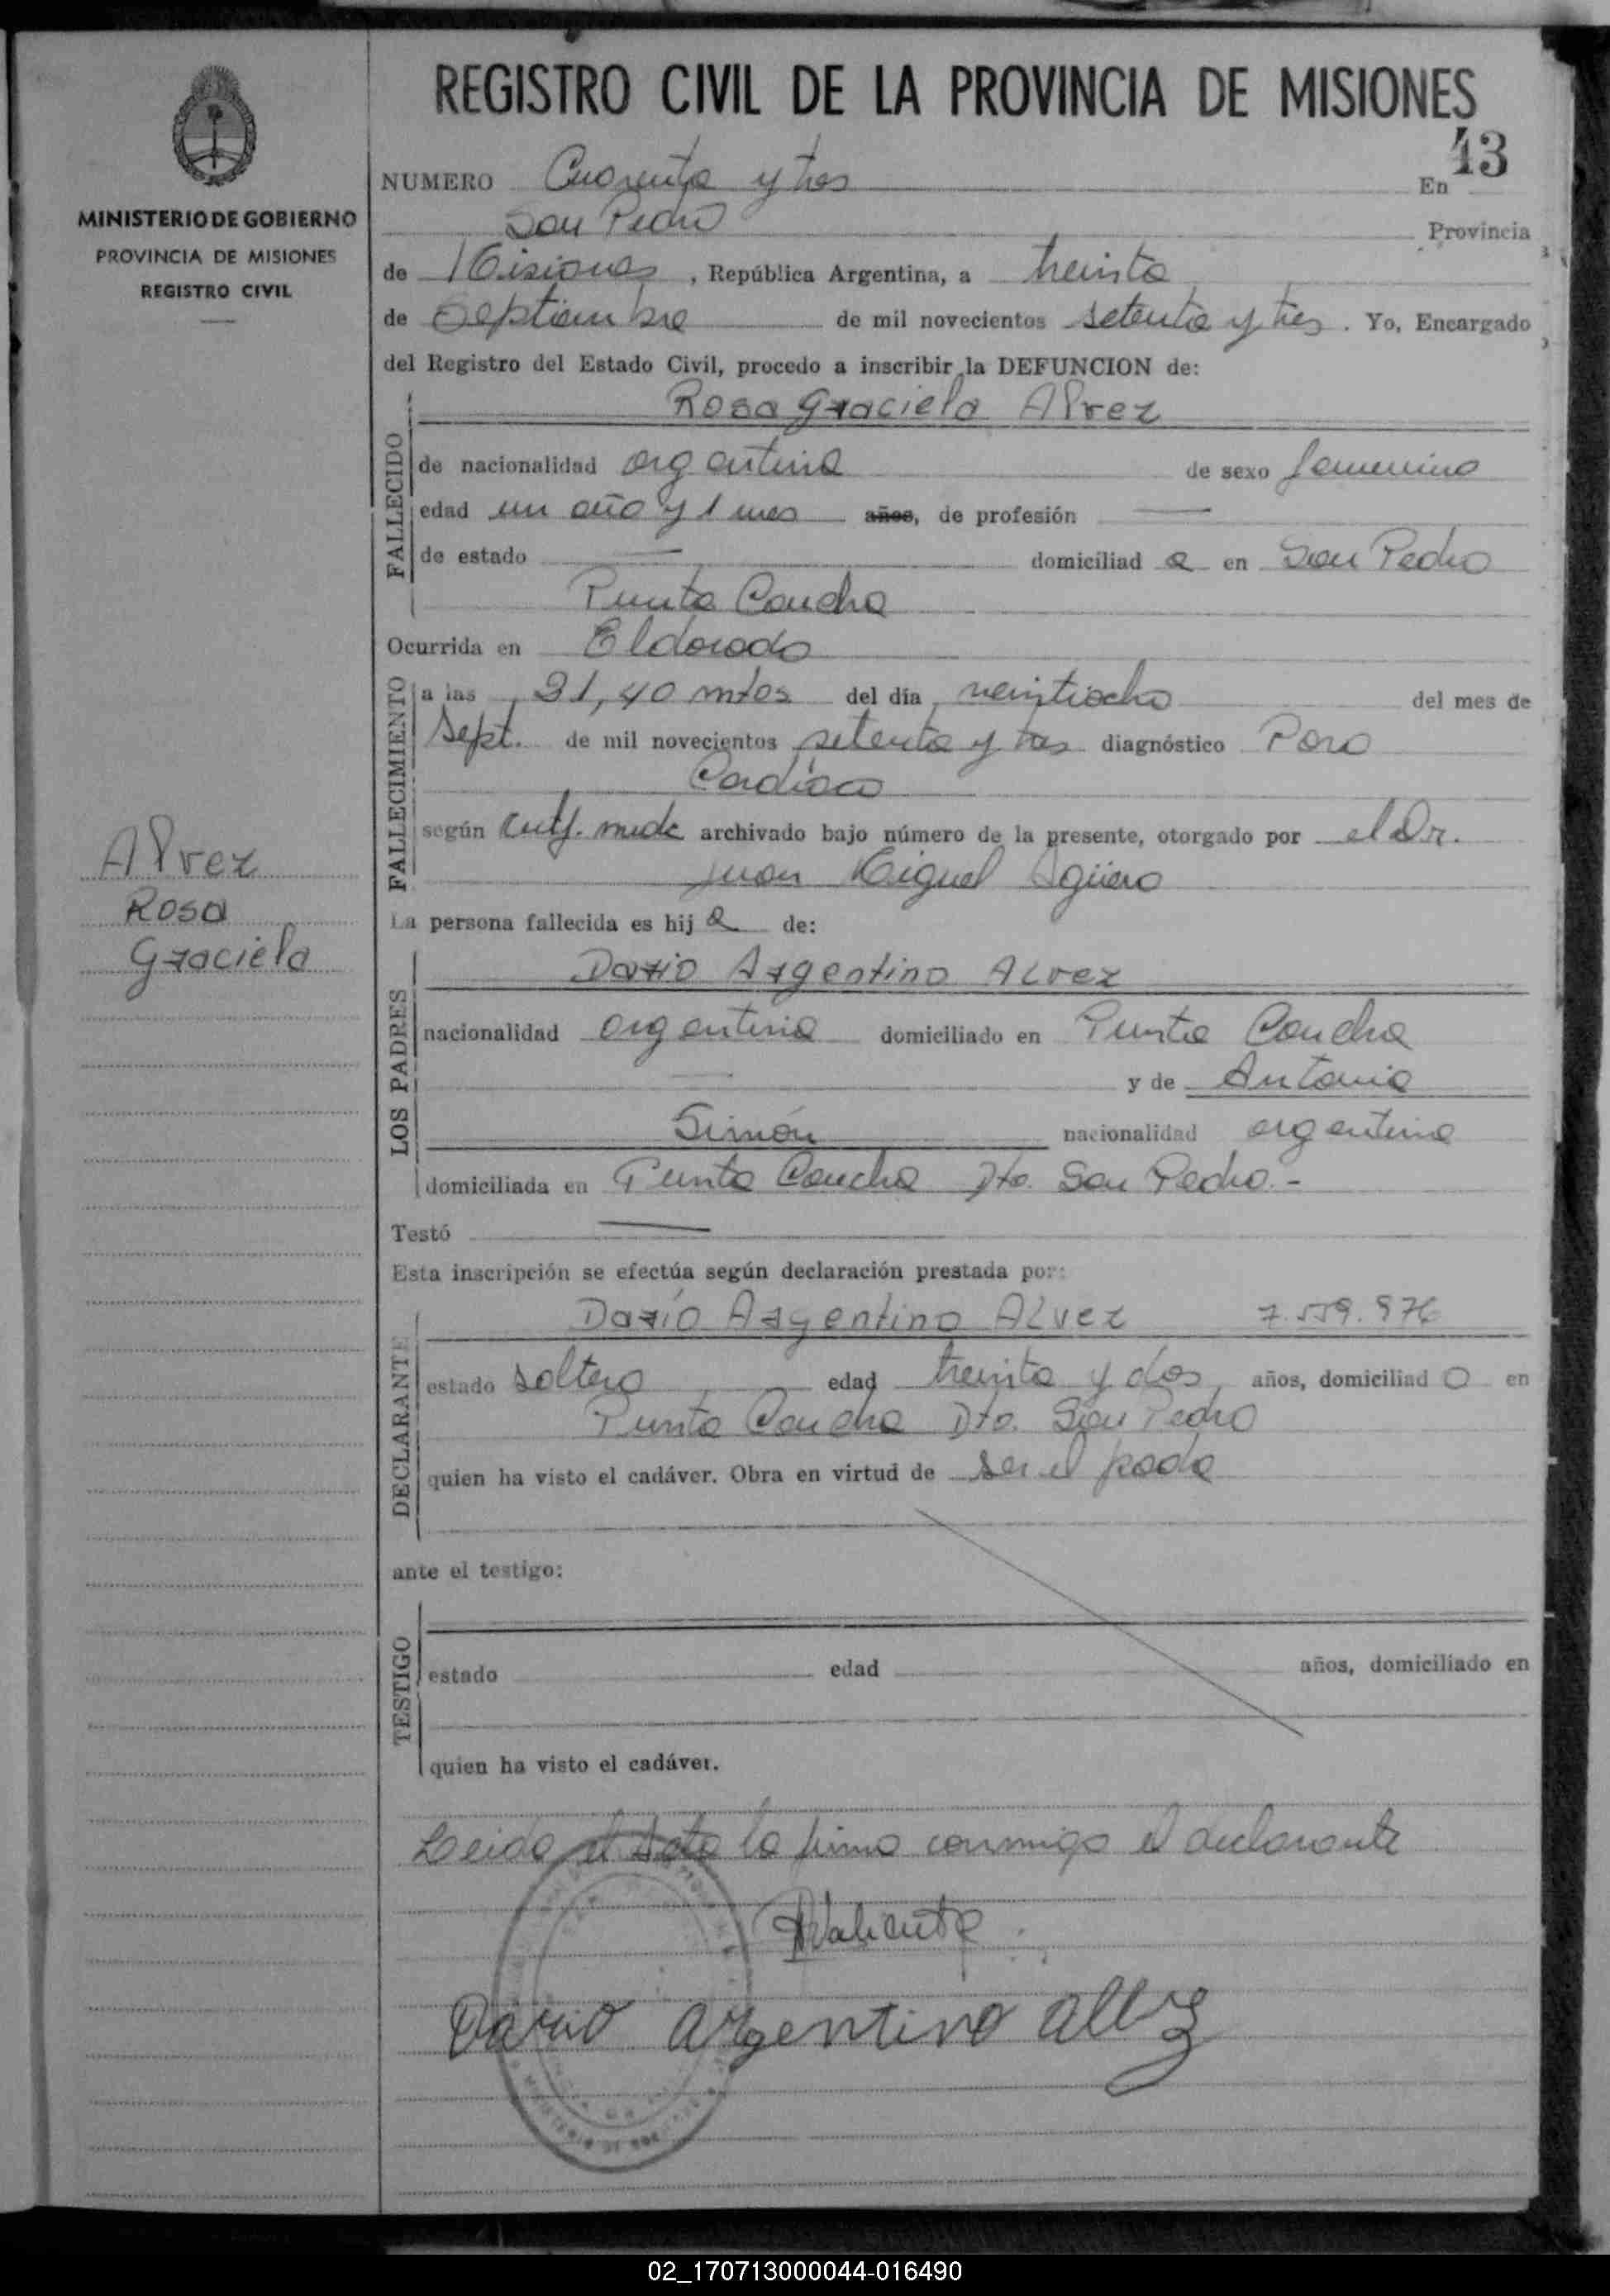 REGISTRO CIVIL DE LA PROVINCIA DE MISIONES
43
MINISTERIO DE GOBIERNO
PROVINCIA DE MISIONES
REGISTRO CIVIL
NUMERO Cuarenta y tres En
San Pedro Provincia
de Misiones, República Argentina, a treinta
de Septiembre de mil novecientos setenta y tres. Yo, Encargado
del Registro del Estado Civil, procedo a inscribir la DEFUNCION de:
Rosa Graciela Alvez
FALLECIDO
de nacionalidad argentina de sexo femenino
edad un año y 1 mes años, de profesión —
de estado — domiciliad a en San Pedro
Punta Concha
Ocurrida en Eldorado
FALLECIMIENTO
a las 21,40 mtos del día veintiocho del mes de
Sept. de mil novecientos setenta y tres diagnóstico Paro
Cardíaco
según Certf. medc archivado bajo número de la presente, otorgado por el Dr.
Juan Miguel Agüero
Alvez
Rosa
Graciela
La persona fallecida es hij a de:
LOS PADRES
Dario Argentino Alvez
nacionalidad argentina domiciliado en Punta Concha
— y de Antonia
Simón nacionalidad argentina
domiciliada en Punta Concha Dto. San Pedro.-
Testó —
Esta inscripción se efectúa según declaración prestada por:
DECLARANTE
Darío Argentino Alvez 7.559.976
estado soltero edad treinta y dos años, domiciliad o en
Punta Concha Dto. San Pedro
quien ha visto el cadáver. Obra en virtud de ser el padre
ante el testigo:
TESTIGO
estado edad años, domiciliado en
quien ha visto el cadáver.
Leida el Acta la firma conmigo el declarante
Valiente
Dario argentino alvez
02_170713000044-016490